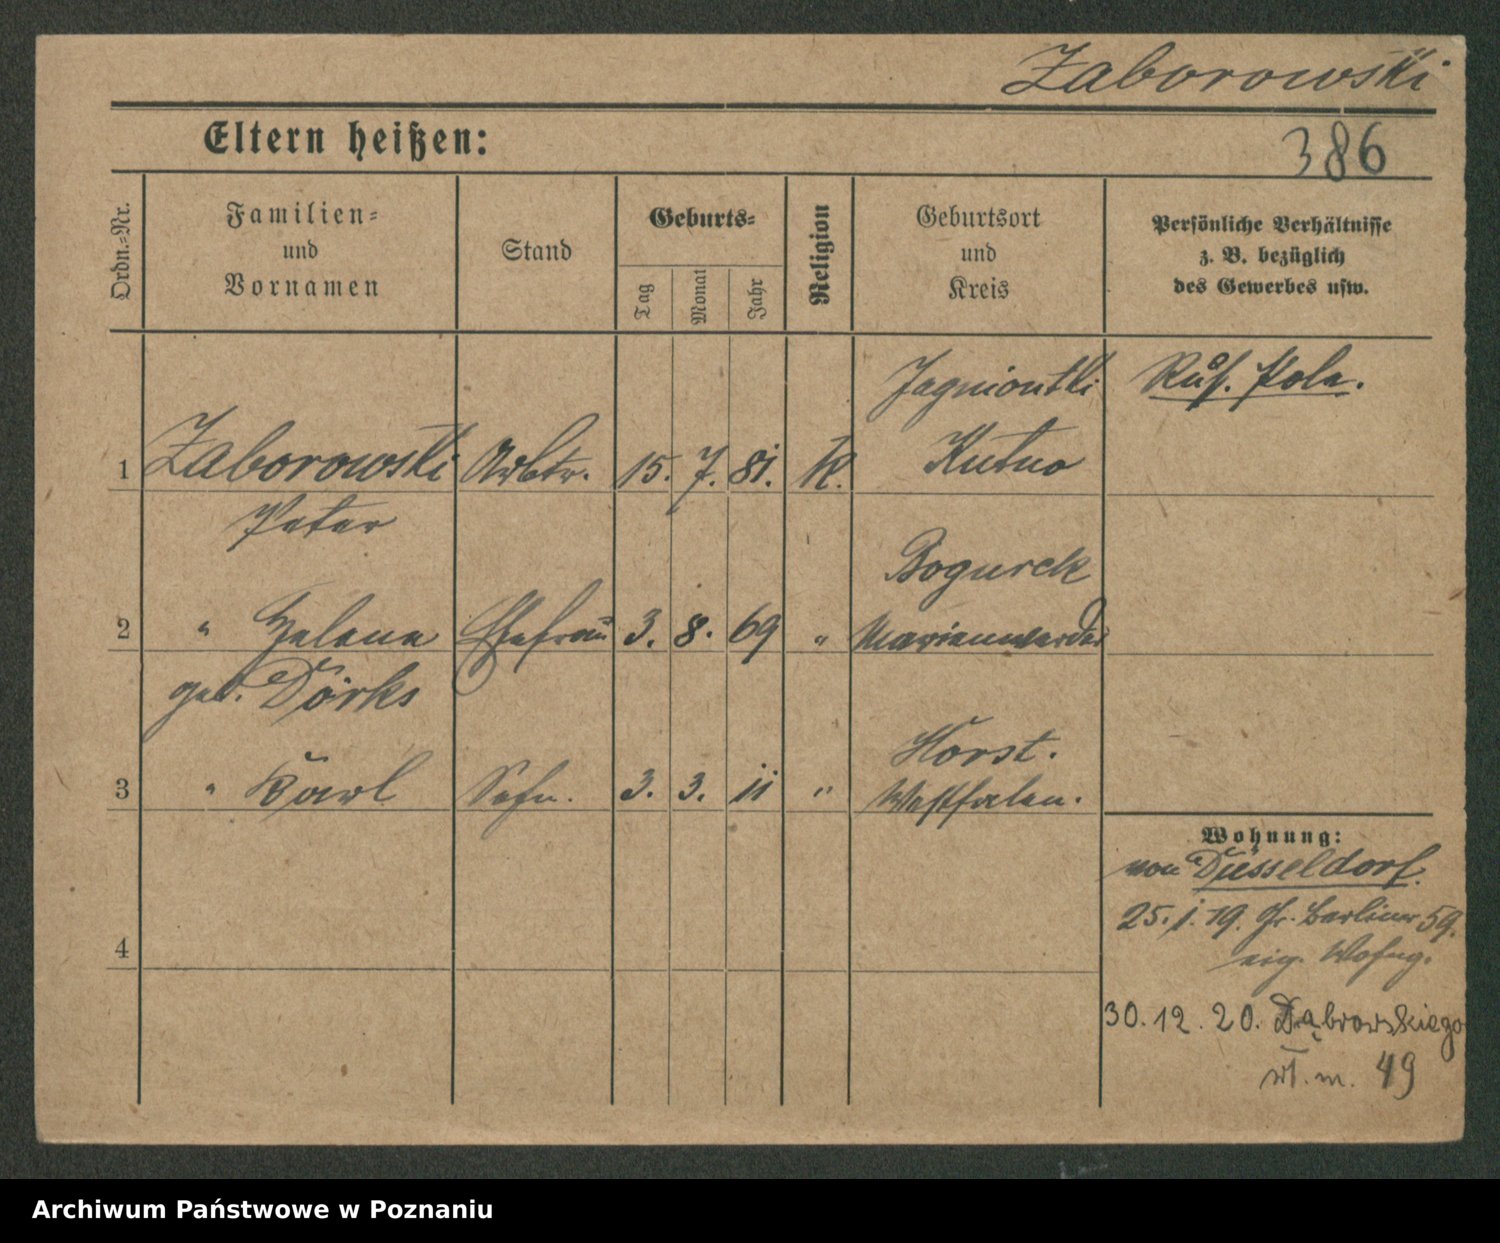 Zaborowski
Eltern heißen:
386
Ordn.-Nr.
Familien-
und
Vornamen
Stand
Geburts-
Tag
Monat
Jahr
Religion
Geburtsort
und
Kreis
Persönliche Verhältnisse
z. B. bezüglich
des Gewerbes usw.
Jagniontki
Russ. Pole.
1 Zaborowski Arbtr. 15. 7. 81. K. Kutno
Peter
Bogusch
2 " Helene Ehefrau 3. 8. 69 " Marienwerder
geb. Dörks
Horst.
3 " Karl Sohn. 3. 3. 11 " Westfalen.
Wohnung:
von Düsseldorf.
25. 1. 19. Gr. Berliner 59.
eig. Wohng.
4
30. 12. 20. Dąbrowskiego
wł. m. 49
Archiwum Państwowe w Poznaniu